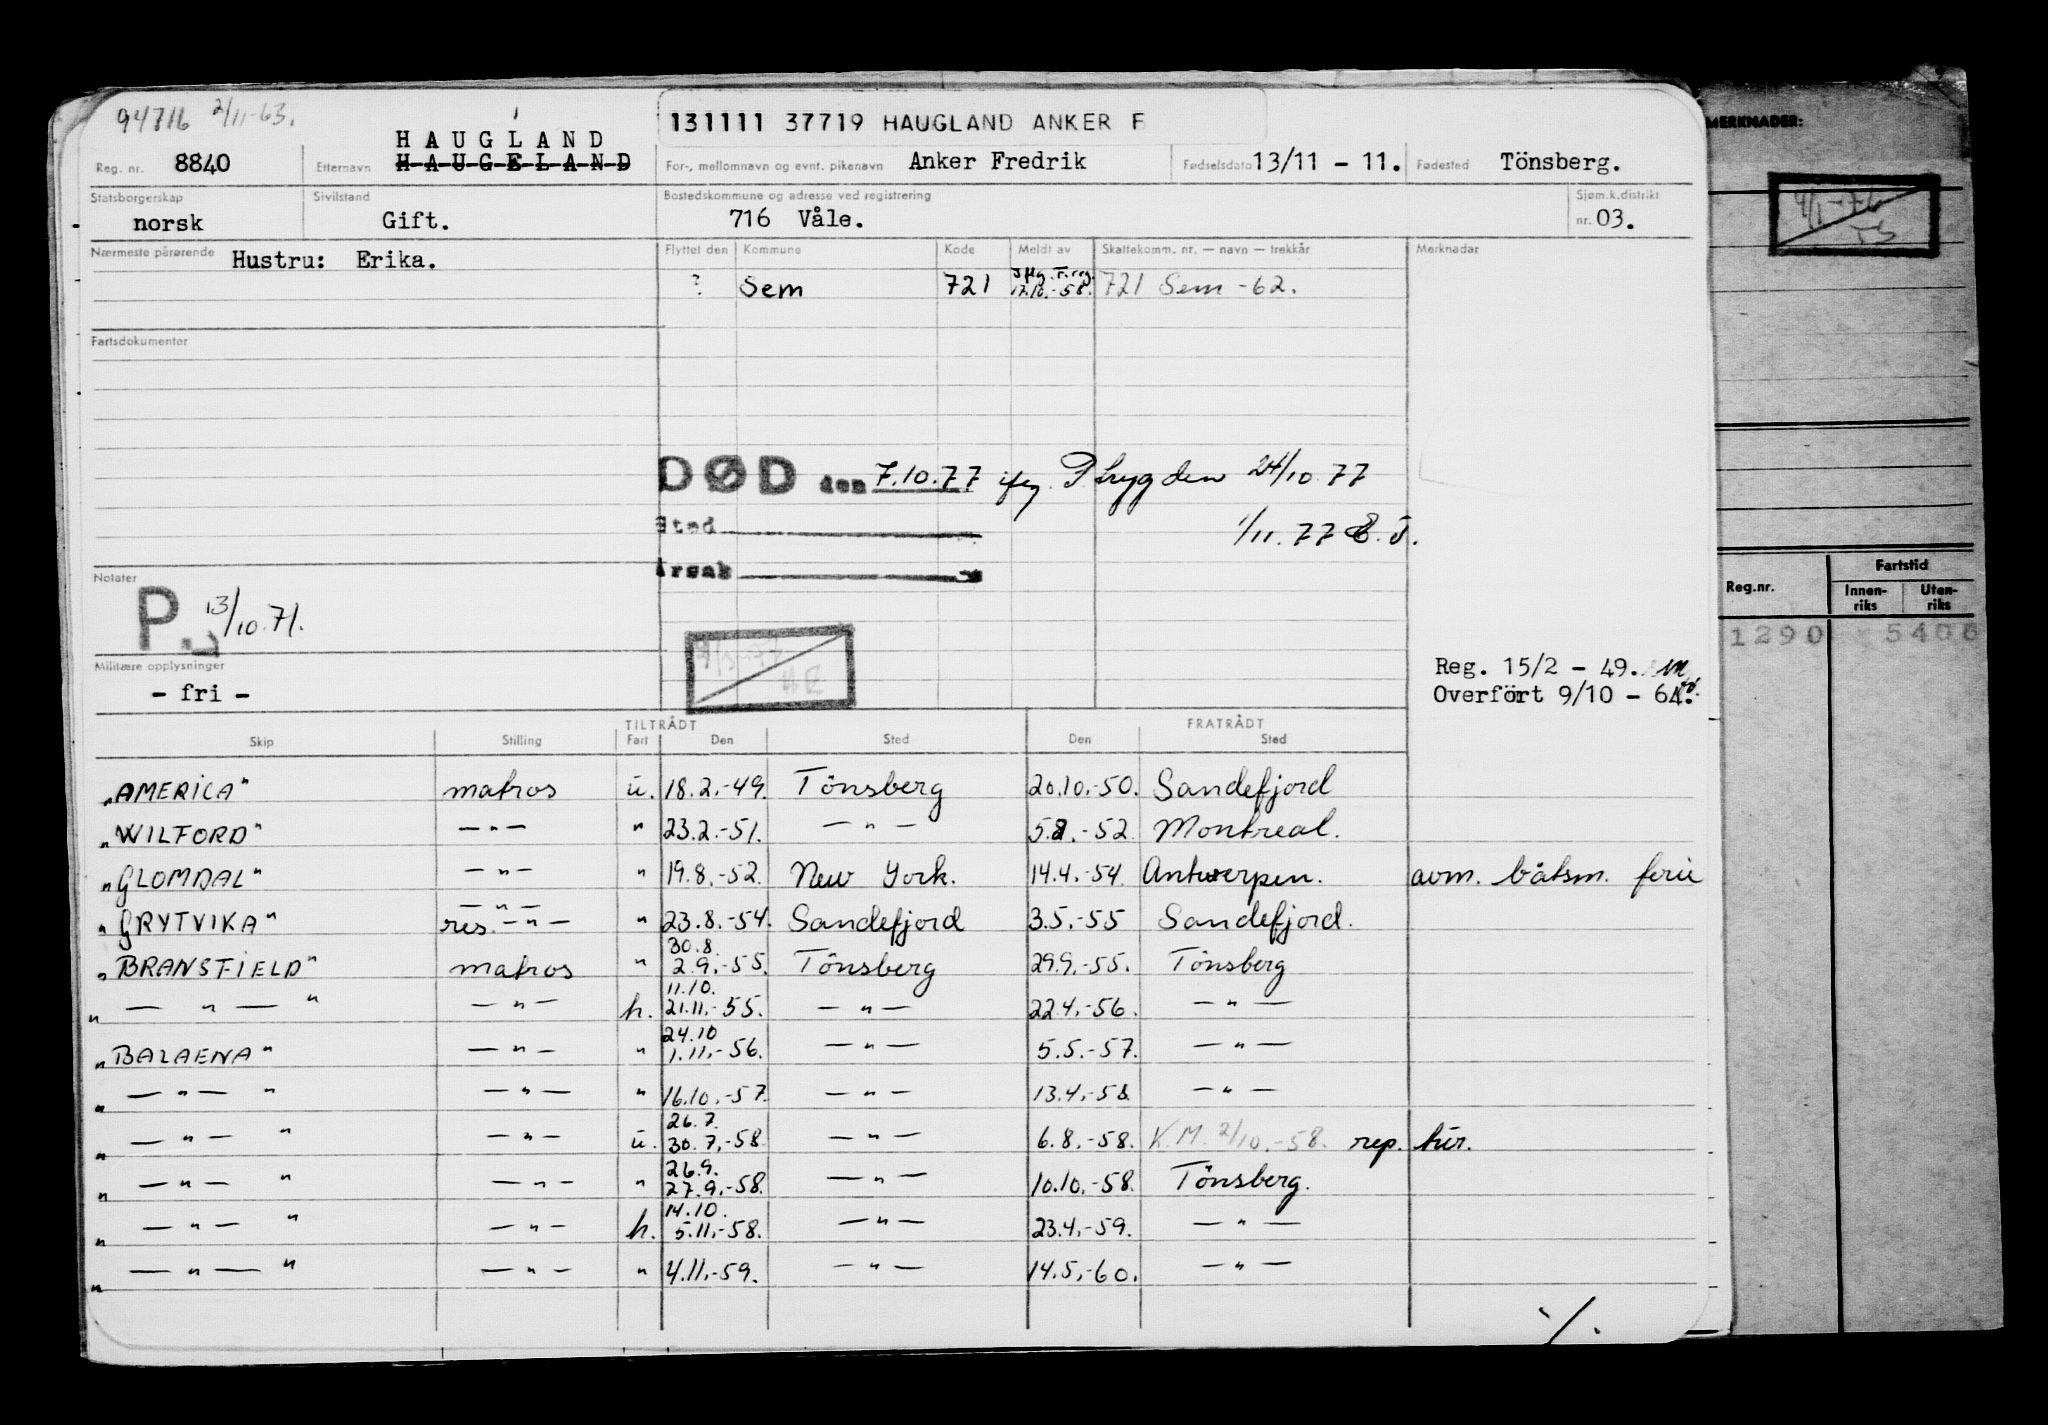 94716 2/11-63.
131111 37719 HAUGLAND ANKER F
MERKNADER:
HAUGLAND
Reg. nr. 8840 Etternavn HAUGELAND For-, mellomnavn og evnt. pikenavn Anker Fredrik Fødselsdato 13/11 - 11. Fødested Tönsberg.
Statsborgerskap norsk Sivilstand Gift. Bostedskommune og adresse ved registrering 716 Våle. Sjøm.k.distrikt nr. 03.
Nærmeste pårørende Hustru: Erika. Flyttet den Kommune Kode Meldt av Skattekomm. nr. — navn — trekkår Merknader
? Sem 721 17.10.-58. 721 Sem -62.
Fartsdokumenter
DØD den 7.10.77 ifg. P.tryg den 24/10 77
Sted 1/11. 77
Årsak
Notater
P. 13/10.71.
Militære opplysninger
- fri -
Reg. 15/2 - 49.
Overfört 9/10 - 64.
Reg.nr. Fartstid
Innenriks Utenriks
1290 5406
TILTRÅDT FRATRÅDT
Skip Stilling Fart Den Sted Den Sted
"AMERICA" matros u. 18.2.-49. Tönsberg 20.10.-50. Sandefjord
"WILFORD" — " — " 23.2.-51. — " — 5.8.-52. Montreal.
"GLOMDAL" — " — " 19.8.-52. New York. 14.4.-54. Antwerpen. avm. båtsm. ferie
— " —
"GRYTVIKA" res. — " — " 23.8.-54. Sandefjord 3.5.-55 Sandefjord.
30.8.
"BRANSFIELD" matros " 2.9.-55. Tönsberg 29.9.-55. Tönsberg
11.10.
" — " — " — " — h. 21.11.-55. — " — 22.4.-56. — " —
24.10
"BALAENA" — " — " 1.11.-56. — " — 5.5.-57. — " —
" — " — " — " — " 16.10.-57. — " — 13.4.-58. — " —
26.7.
" — " — " — " — u. 30.7.-58. — " — 6.8.-58. K.M. 2/10.-58. rep. tur.
26.9.
" — " — " — " — " 27.9.-58. — " — 10.10.-58. Tönsberg.
14.10.
" — " — " — " — h. 5.11.-58. — " — 23.4.-59. — " —
" — " — " — " — " 4.11.-59. — " — 14.5.-60. — " —
./.